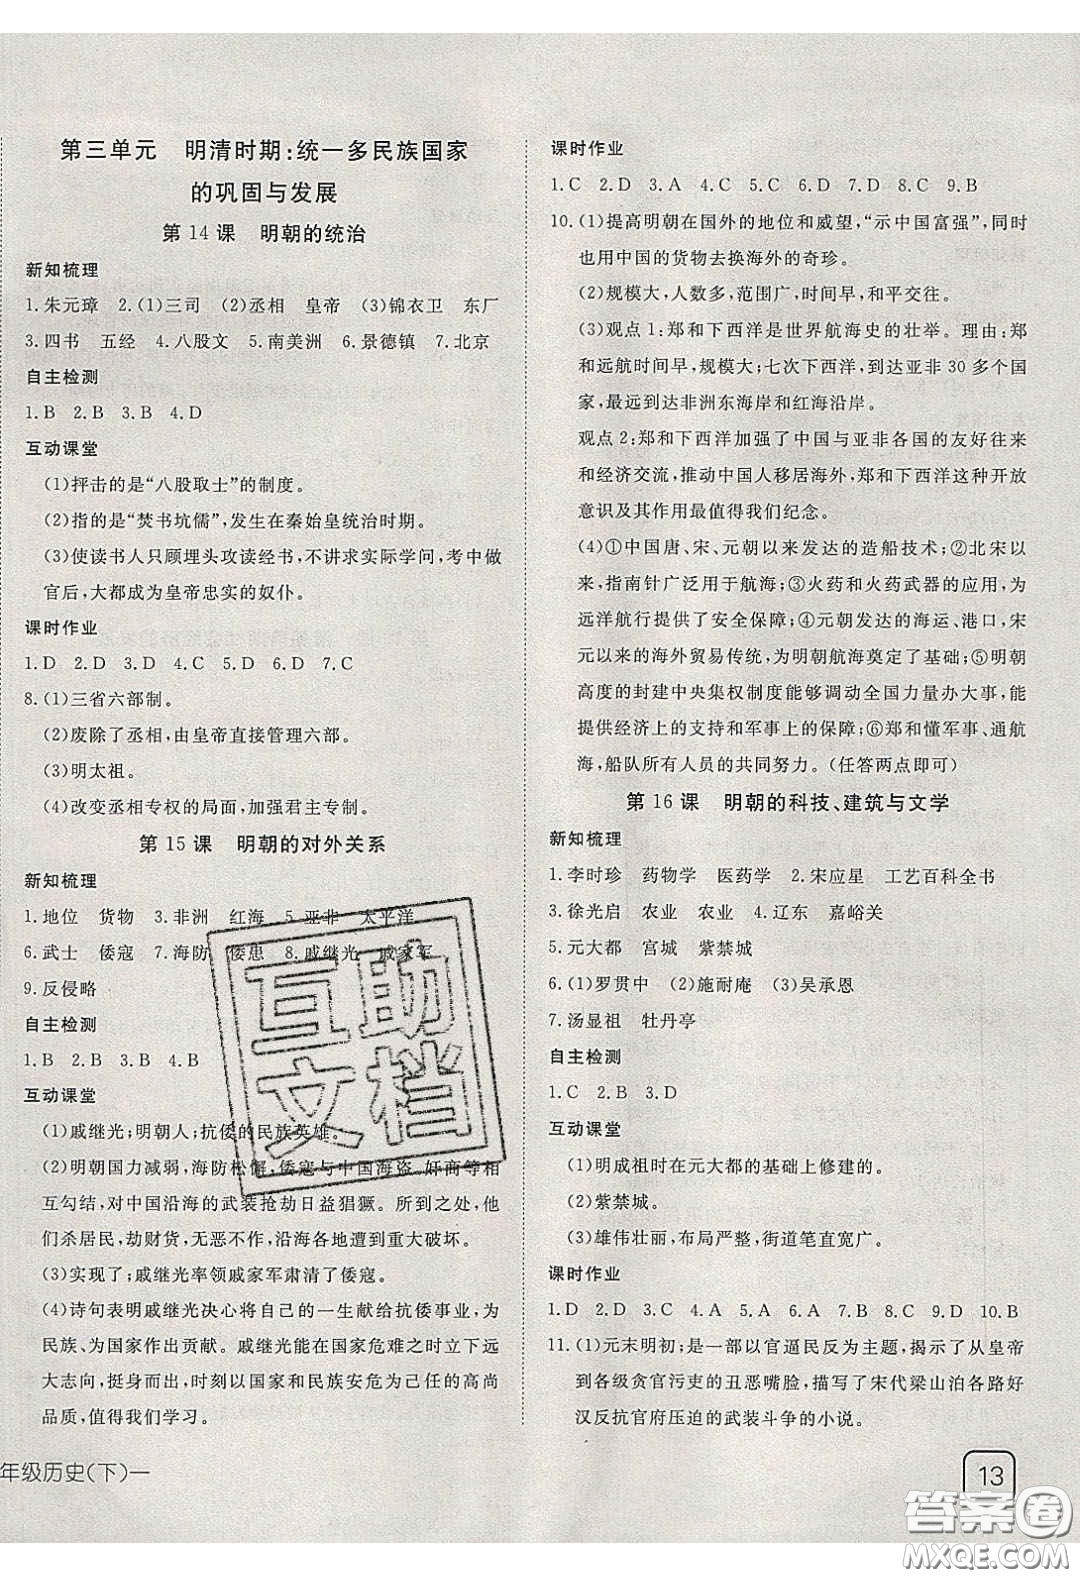 第三单元　明清时期:统一多民族国家
的巩固与发展
第 14 课　明朝的统治
新知梳理
1.朱元璋　2.(1)三司　(2)丞相　皇帝　(3)锦衣卫　东厂
3.四书　五经　4.八股文　5.南美洲　6.景德镇　7.北京
自主检测
1.B　2.B　3.B　4.D
互动课堂
(1)抨击的是“八股取士”的制度。
(2)指的是“焚书坑儒”,发生在秦始皇统治时期。
(3)使读书人只顾埋头攻读经书,不讲求实际学问,考中做
官后,大都成为皇帝忠实的奴仆。
课时作业
1.D　2.D　3.D　4.C　5.D　6.D　7.C
8.(1)三省六部制。
(2)废除了丞相,由皇帝直接管理六部。
(3)明太祖。
(4)改变丞相专权的局面,加强君主专制。
第 15 课　明朝的对外关系
新知梳理
1.地位　货物　3.非洲　红海　5.亚非　太平洋
6.武士　倭寇　7.海防　倭患　8.戚继光　戚家军
9.反侵略
自主检测
1.B　2.B　3.B　4.B
互动课堂
(1)戚继光;明朝人;抗倭的民族英雄。
(2)明朝国力减弱,海防松懈,倭寇与中国海盗、奸商等相
互勾结,对中国沿海的武装抢劫日益猖獗。所到之处,他
们杀居民,劫财货,无恶不作,沿海各地遭到重大破坏。
(3)实现了;戚继光率领戚家军肃清了倭寇。
(4)诗句表明戚继光决心将自己的一生献给抗倭事业,为
民族、为国家作出贡献。戚继光能在国家危难之时立下远
大志向,挺身而出,时刻以国家和民族安危为己任的高尚
品质,值得我们学习。
年级历史(下)一
课时作业
1.C　2.D　3.A　4.A　5.B　6.D　7.D　8.C　9.B
10.(1)提高明朝在国外的地位和威望,“示中国富强”,同时
也用中国的货物去换海外的奇珍。
(2)规模大,人数多,范围广,时间早,和平交往。
(3)观点 1:郑和下西洋是世界航海史的壮举。理由:郑
和远航时间早,规模大;七次下西洋,到达亚非 30 多个国
家,最远到达非洲东海岸和红海沿岸。
观点 2:郑和下西洋加强了中国与亚非各国的友好往来
和经济交流,推动中国人移居海外,郑和下西洋这种开放
意识及其作用最值得我们纪念。
(4)①中国唐、宋、元朝以来发达的造船技术;②北宋以
来,指南针广泛用于航海;③火药和火药武器的应用,为
远洋航行提供了安全保障;④元朝发达的海运、港口,宋
元以来的海外贸易传统,为明朝航海奠定了基础;⑤明朝
高度的封建中央集权制度能够调动全国力量办大事,能
提供经济上的支持和军事上的保障;⑥郑和懂军事、通航
海,船队所有人员的共同努力。(任答两点即可)
第 16 课　明朝的科技、建筑与文学
新知梳理
1.李时珍　药物学　医药学　2.宋应星　工艺百科全书
3.徐光启　农业　农业　4.辽东　嘉峪关
5.元大都　宫城　紫禁城
6.(1)罗贯中　(2)施耐庵　(3)吴承恩
7.汤显祖　牡丹亭
自主检测
1.C　2.B　3.D
互动课堂
(1)明成祖时在元大都的基础上修建的。
(2)紫禁城。
(3)雄伟壮丽,布局严整,街道笔直宽广。
课时作业
1.D　2.D　3.C　4.A　5.A　6.A　7.B　8.C　9.D　10.B
11.(1)元末明初;是一部以官逼民反为主题,揭示了从皇帝
到各级贪官污吏的丑恶嘴脸,描写了宋代梁山泊各路好
汉反抗官府压迫的武装斗争的小说。
13
互助
文档
答案圈
MXQE.COM